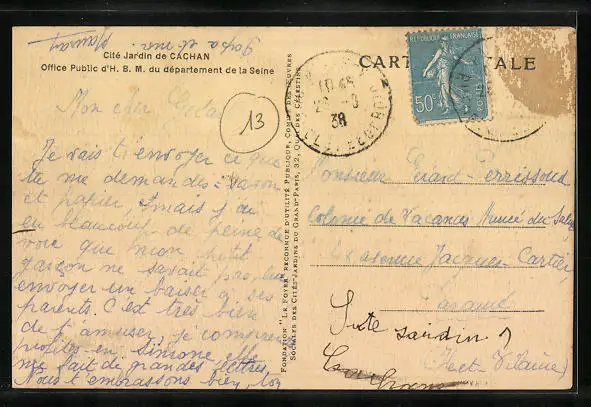 Papa et
Cité Jardin de CACHAN
Office Public d'H. B. M. du département de la Seine
CARTE POSTALE
RÉPUBLIQUE FRANÇAISE
50c
POSTES
38
13
Mon cher
Je vais t'envoyer ce que
tu me demandes = savon
et papier, mais j'ai
eu beaucoup de peine de
voir que mon petit
garçon ne savait pas
envoyer un baiser à ses
parents. C'est très bien
de t'amuser, je comprends
Simone elle
me fait de grandes lettres.
Nous t'embrassons bien, ton
FONDATION "LE FOYER" RECONNUE D'UTILITÉ PUBLIQUE, COMITÉ DES ŒUVRES
SOCIALES DES CITÉS-JARDINS DU GRAND-PARIS, 32, QUAI DES CÉLESTINS
Monsieur Gérard Perrissoud
Colonie de Vacances
avenue Jacques-Cartier
Cancale
jardin
(Ille et-Vilaine)